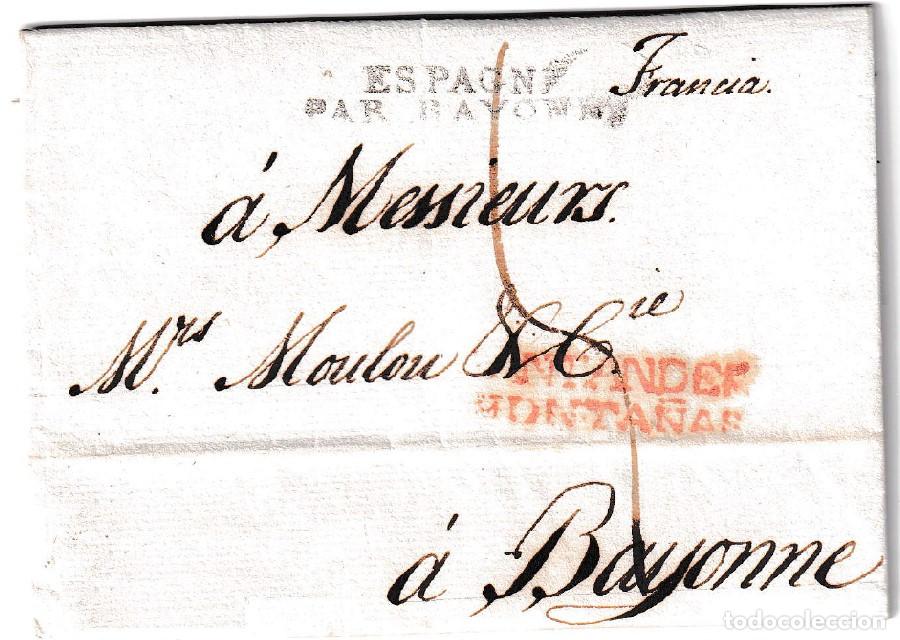 ESPAGNE
PAR BAYONNE
Francia.
á Messieurs.
Mrs Moulou & Cie
SANTANDER
MONTAÑAS
á Bayonne
todocoleccion